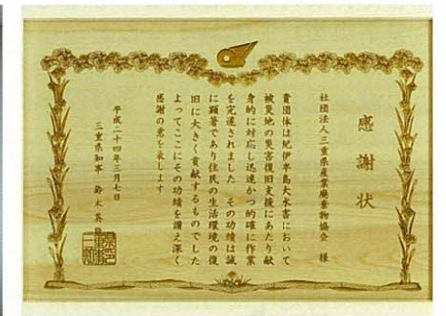 感謝状
社団法人三重県産業廃棄物協会 様
貴団体は紀伊半島大水害において
被災地の災害復旧支援にあたり献
身的に対応し迅速かつ的確に作業
を完遂されました その功績は誠
に顕著であり住民の生活環境の復
旧に大きく貢献するものでした
よってここにその功績を讃え深く
感謝の意を表します
平成二十四年三月七日
三重県知事 鈴木英